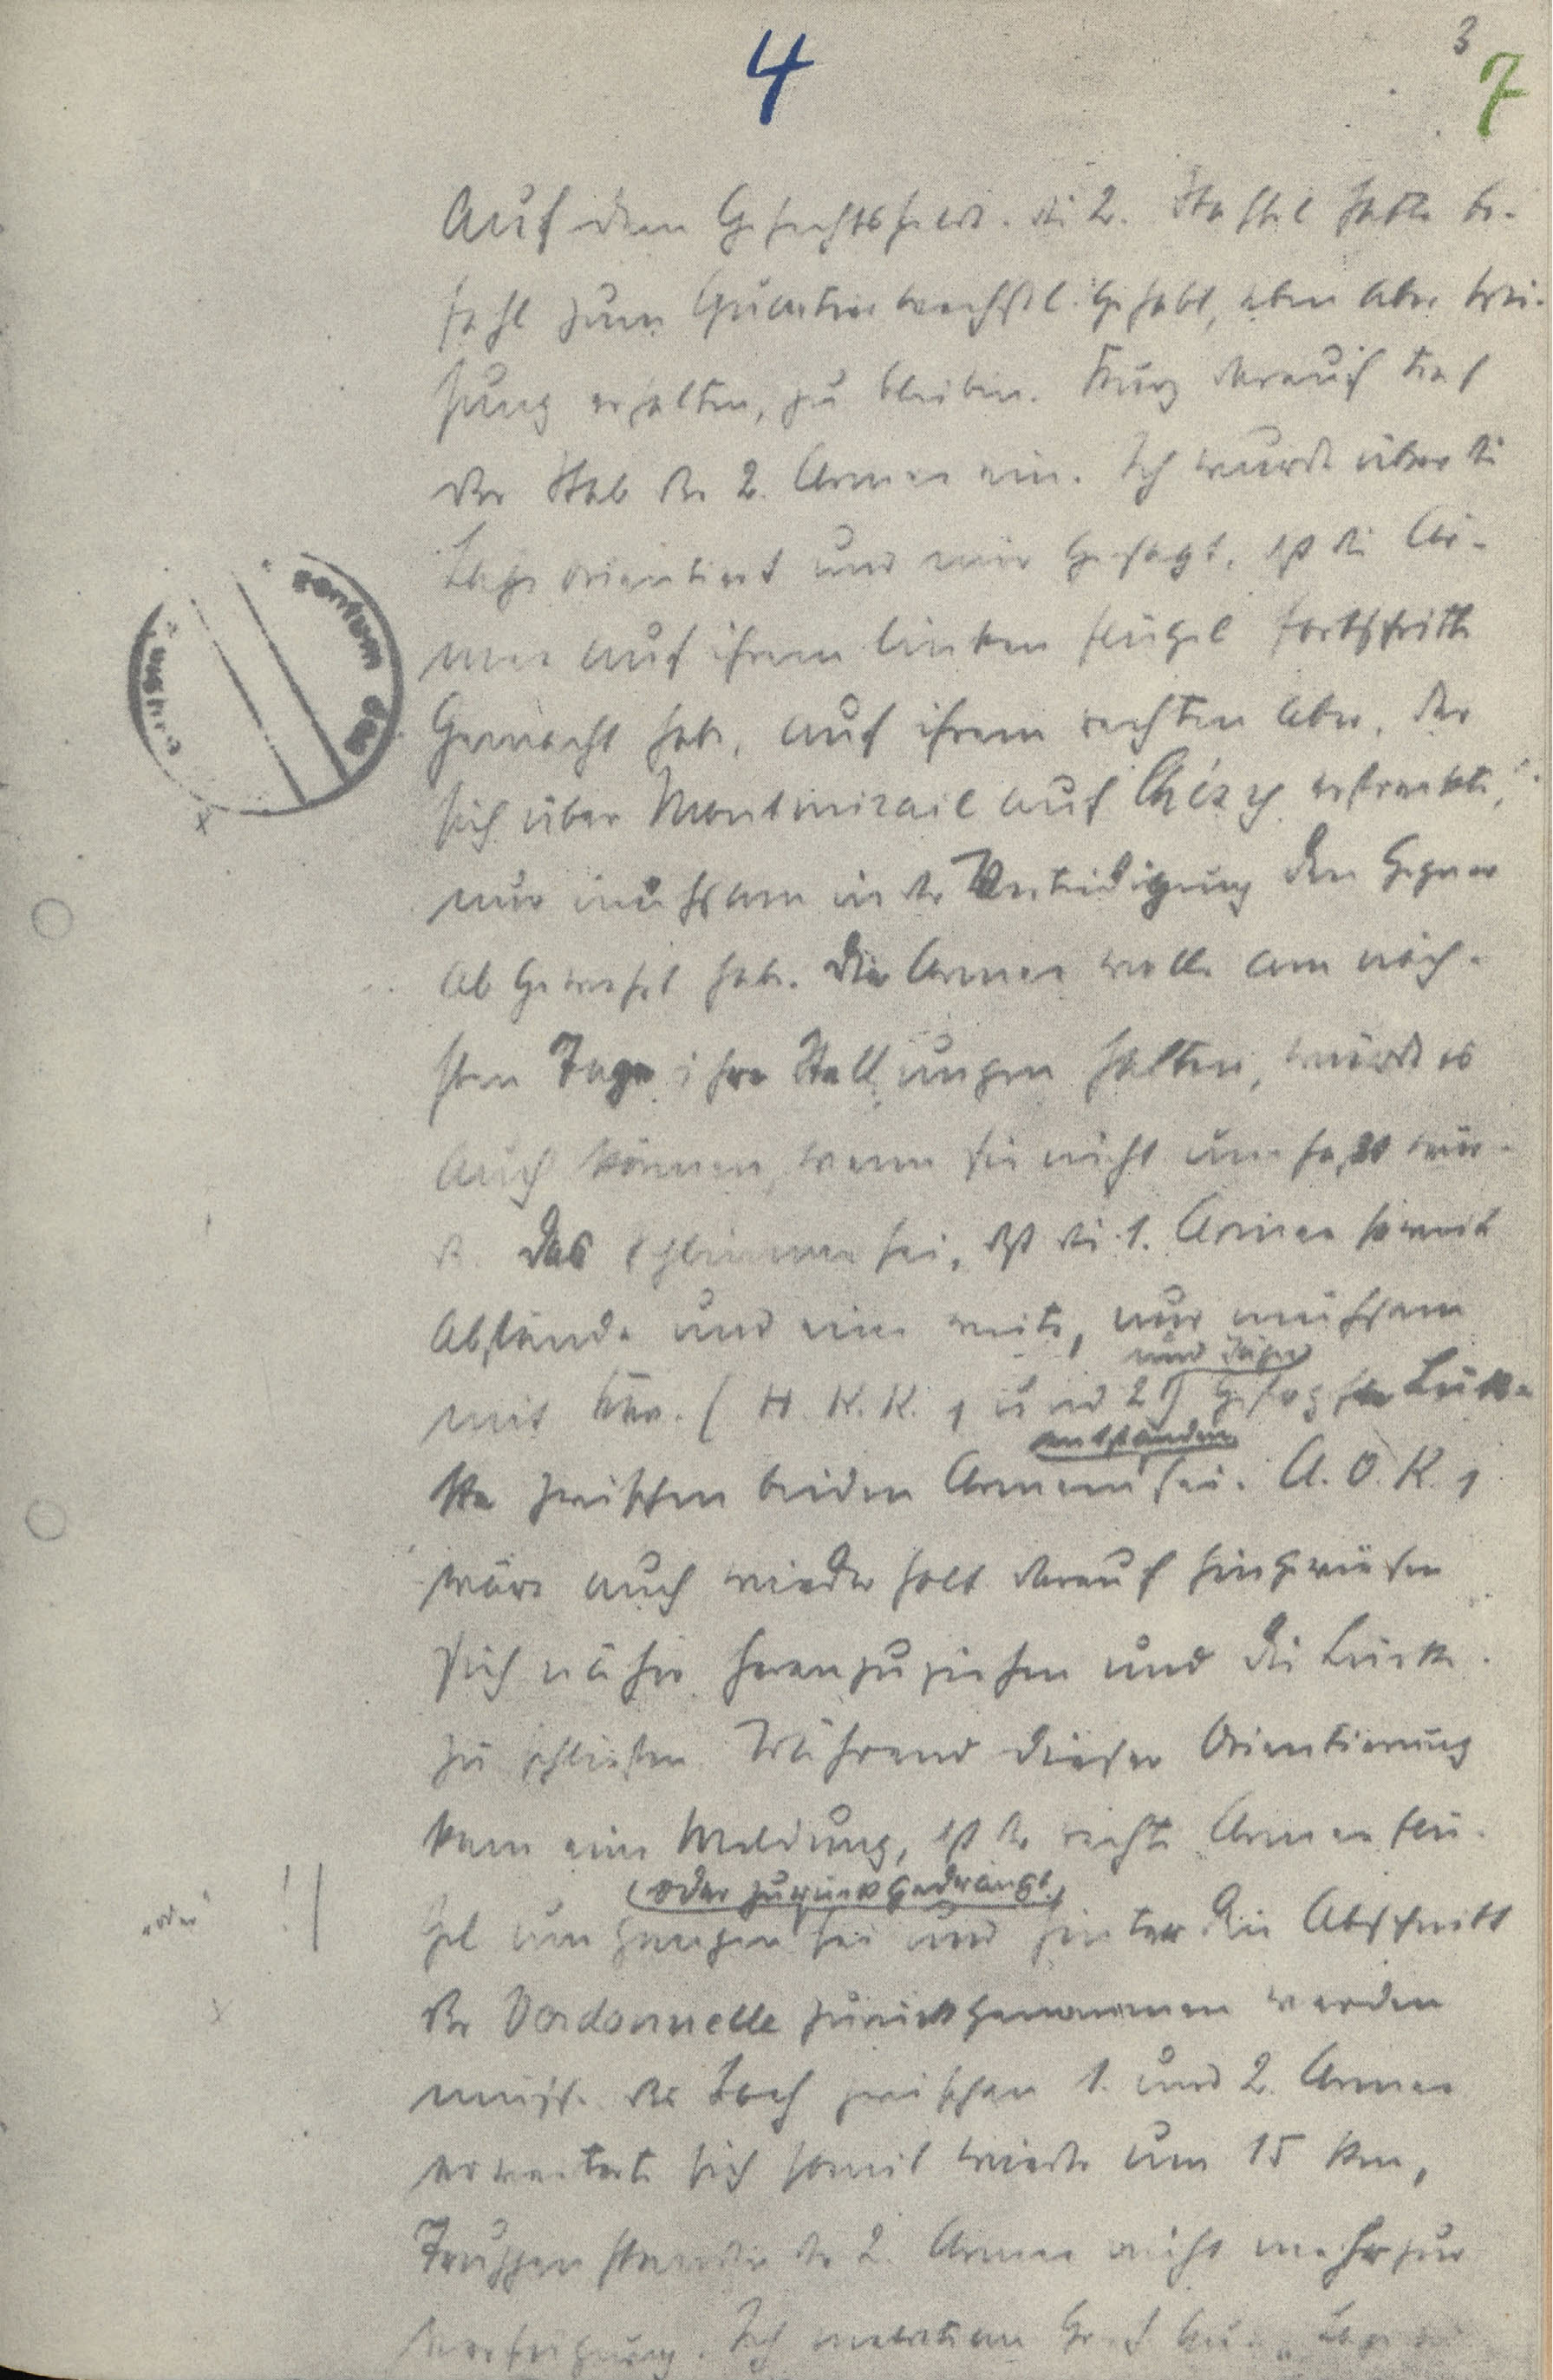 4
3
7
auf dem Gefechtsfelde. Die 2. Staffel hatte Be-
fehl zum Quartierwechsel gehabt, eben aber Wei-
sung erhalten, zu bleiben. Kurz darauf traf
der Stab der 2. Armee ein. Ich wurde über die
Lage orientiert und mir gesagt, daß die Ar-
mee auf ihrem linken Flügel Fortschritte
gemacht habe, auf ihrem rechten aber, der
sich über Montmirail auf Chézy erstreckte,
nur mühsam in der Verteidigung den Gegner
abgewehrt habe. Die Armee wolle am näch-
sten Tage ihre Stellungen halten, würde es
auch können, wenn sie nicht umfaßt wür-
de. Das Schlimme sei, daß die 1. Armee soweit
abstände und eine weite, nur mühsam
und Jäger
mit Kav. (H.K.K. 1 und 2) gestopfte Lük-
entstanden
ke zwischen beiden Armeen sei. A.O.K. 1
wäre auch wiederholt darauf hingewiesen
sich näher heranzuziehen und die Lücke
zu schließen. Während dieser Orientierung
kam eine Meldung, daß der rechte Armeeflü-
(oder zurückgedrängt)
"oder" !|
gel umgangen sei und hinter den Abschnitt
der Dordonnelle zurückgenommen werden
müsse. Das Loch zwischen 1. und 2. Armee
erweiterte sich somit wieder um 15 km,
Truppen standen der 2. Armee nicht mehr zur
Verfügung. Ich